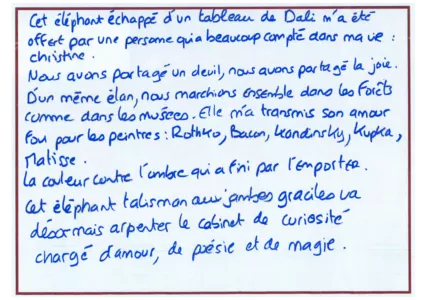 Cet éléphant échappé d'un tableau de Dali m'a été
offert par une personne qui a beaucoup compté dans ma vie :
christine.
Nous avons partagé un deuil, nous avons partagé la joie.
D'un même élan, nous marchions ensemble dans les forêts
comme dans les musées. Elle m'a transmis son amour
fou pour les peintres : Rothko, Bacon, Kandinsky, Kupka,
Matisse.
La couleur contre l'ombre qui a fini par l'emporter.
Cet éléphant talisman aux jambes graciles va
désormais arpenter le cabinet de curiosité
chargé d'amour, de poésie et de magie.